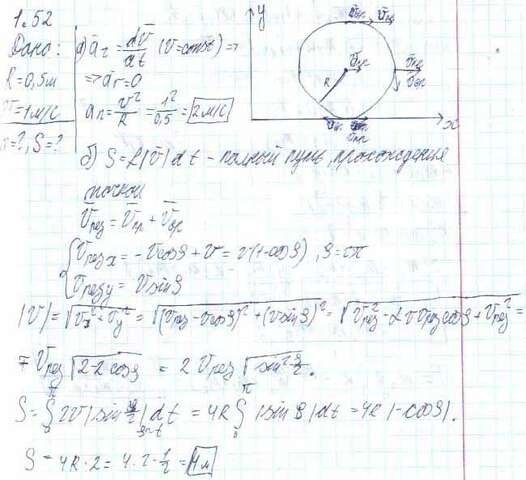 1.52
Дано:
R=0,5м
V=1м/с
=?, S=?
а) a̅τ = dv̅/dt (v=const) ⇒
⇒ aτ=0
an = v²/R = 1²/0,5 = 2 м/с
y
x
R
б) S = ∫|v̅|dt - полный путь, прохождения
точкой
V̅рез = V̅пр + V̅вр
{Vрез x = -Vcosφ + V = V(1-cosφ), φ=
Vрез y = Vsinφ
|V| = √(Vx²+Vy²) = √((Vрез-Vcosφ)²+(Vsinφ)²) = √(Vрез²-2VVрезcosφ+Vрез²) =
= Vрез√(2-2cosφ) = 2Vрез√(sin²φ/2).
S = ∫2V|sin φ/2|dt = 4R∫|sinβ|dt = 4R|-cosβ|.
S = 4R·2 = 4·2·1/2 = 4м